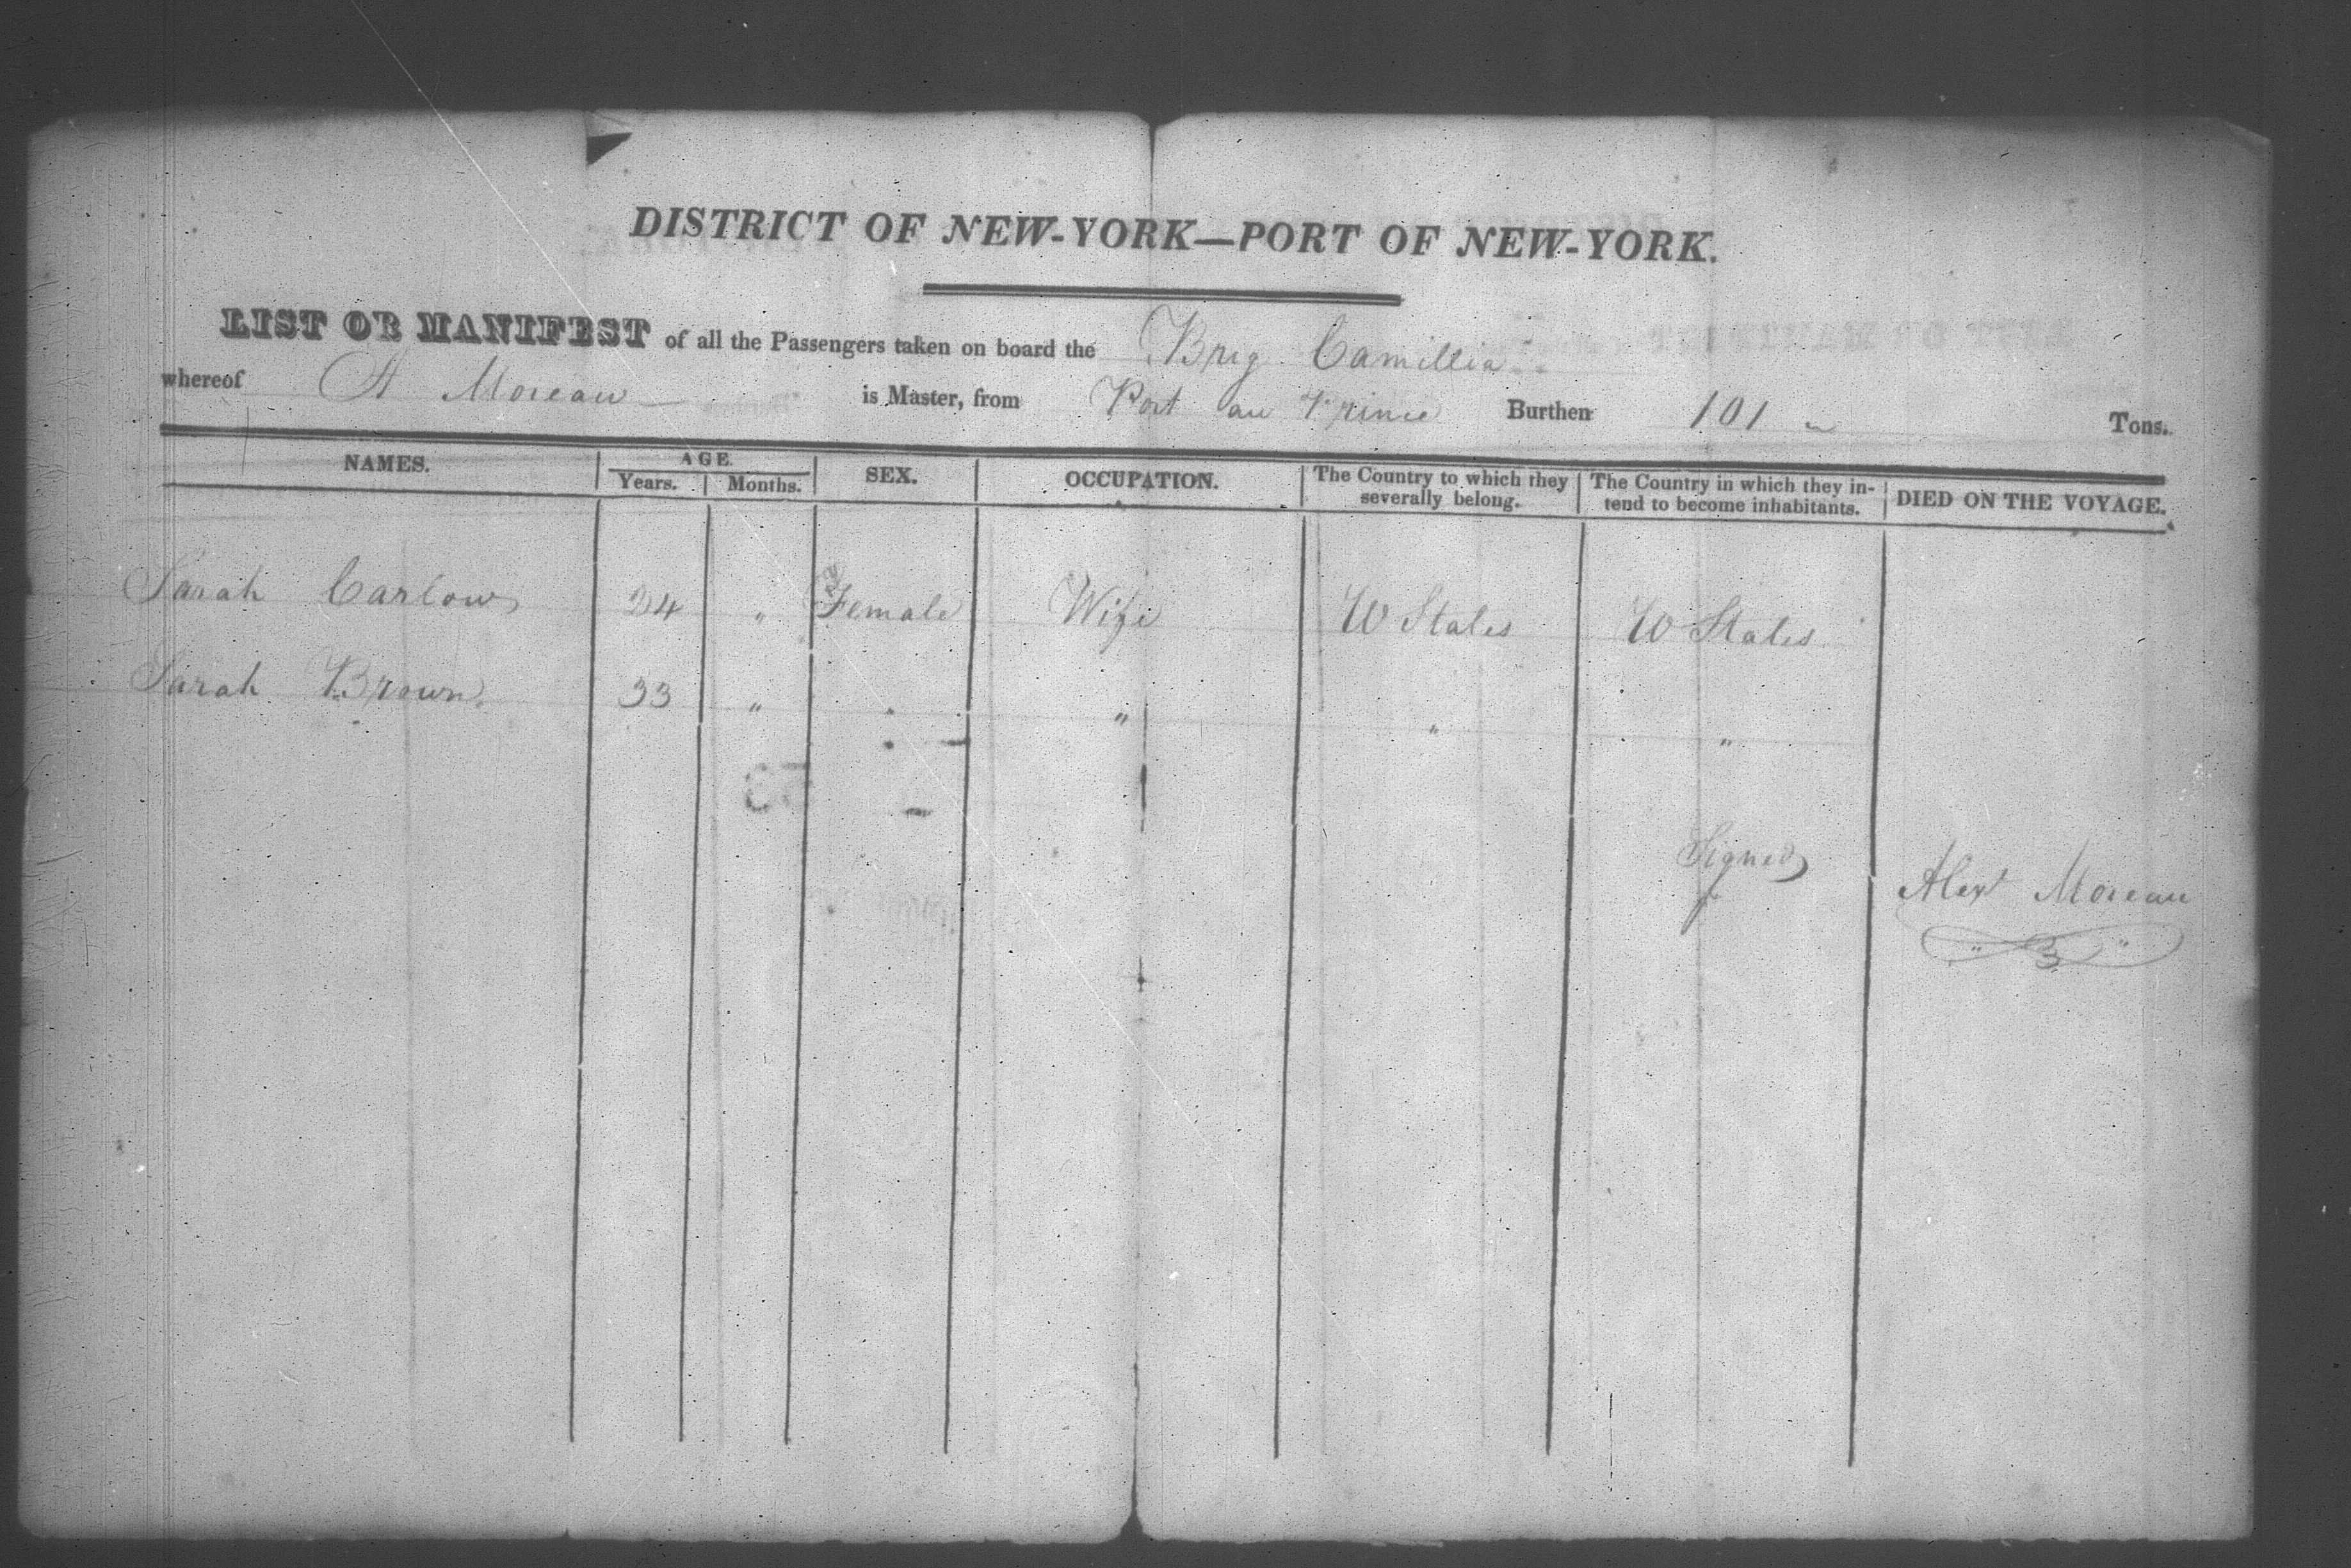 DISTRICT OF NEW-YORK—PORT OF NEW-YORK.
LIST OR MANIFEST of all the Passengers taken on board the Brig Camillia
whereof A Moreau is Master, from Port au Prince Burthen 101 Tons.
NAMES. AGE. SEX. OCCUPATION. The Country to which they severally belong. The Country in which they in-tend to become inhabitants. DIED ON THE VOYAGE.
Years. Months.
Sarah Carlow 34 " Female Wife U States U States
Sarah Brown 33 " " " " "
Signed Alexr Moreau